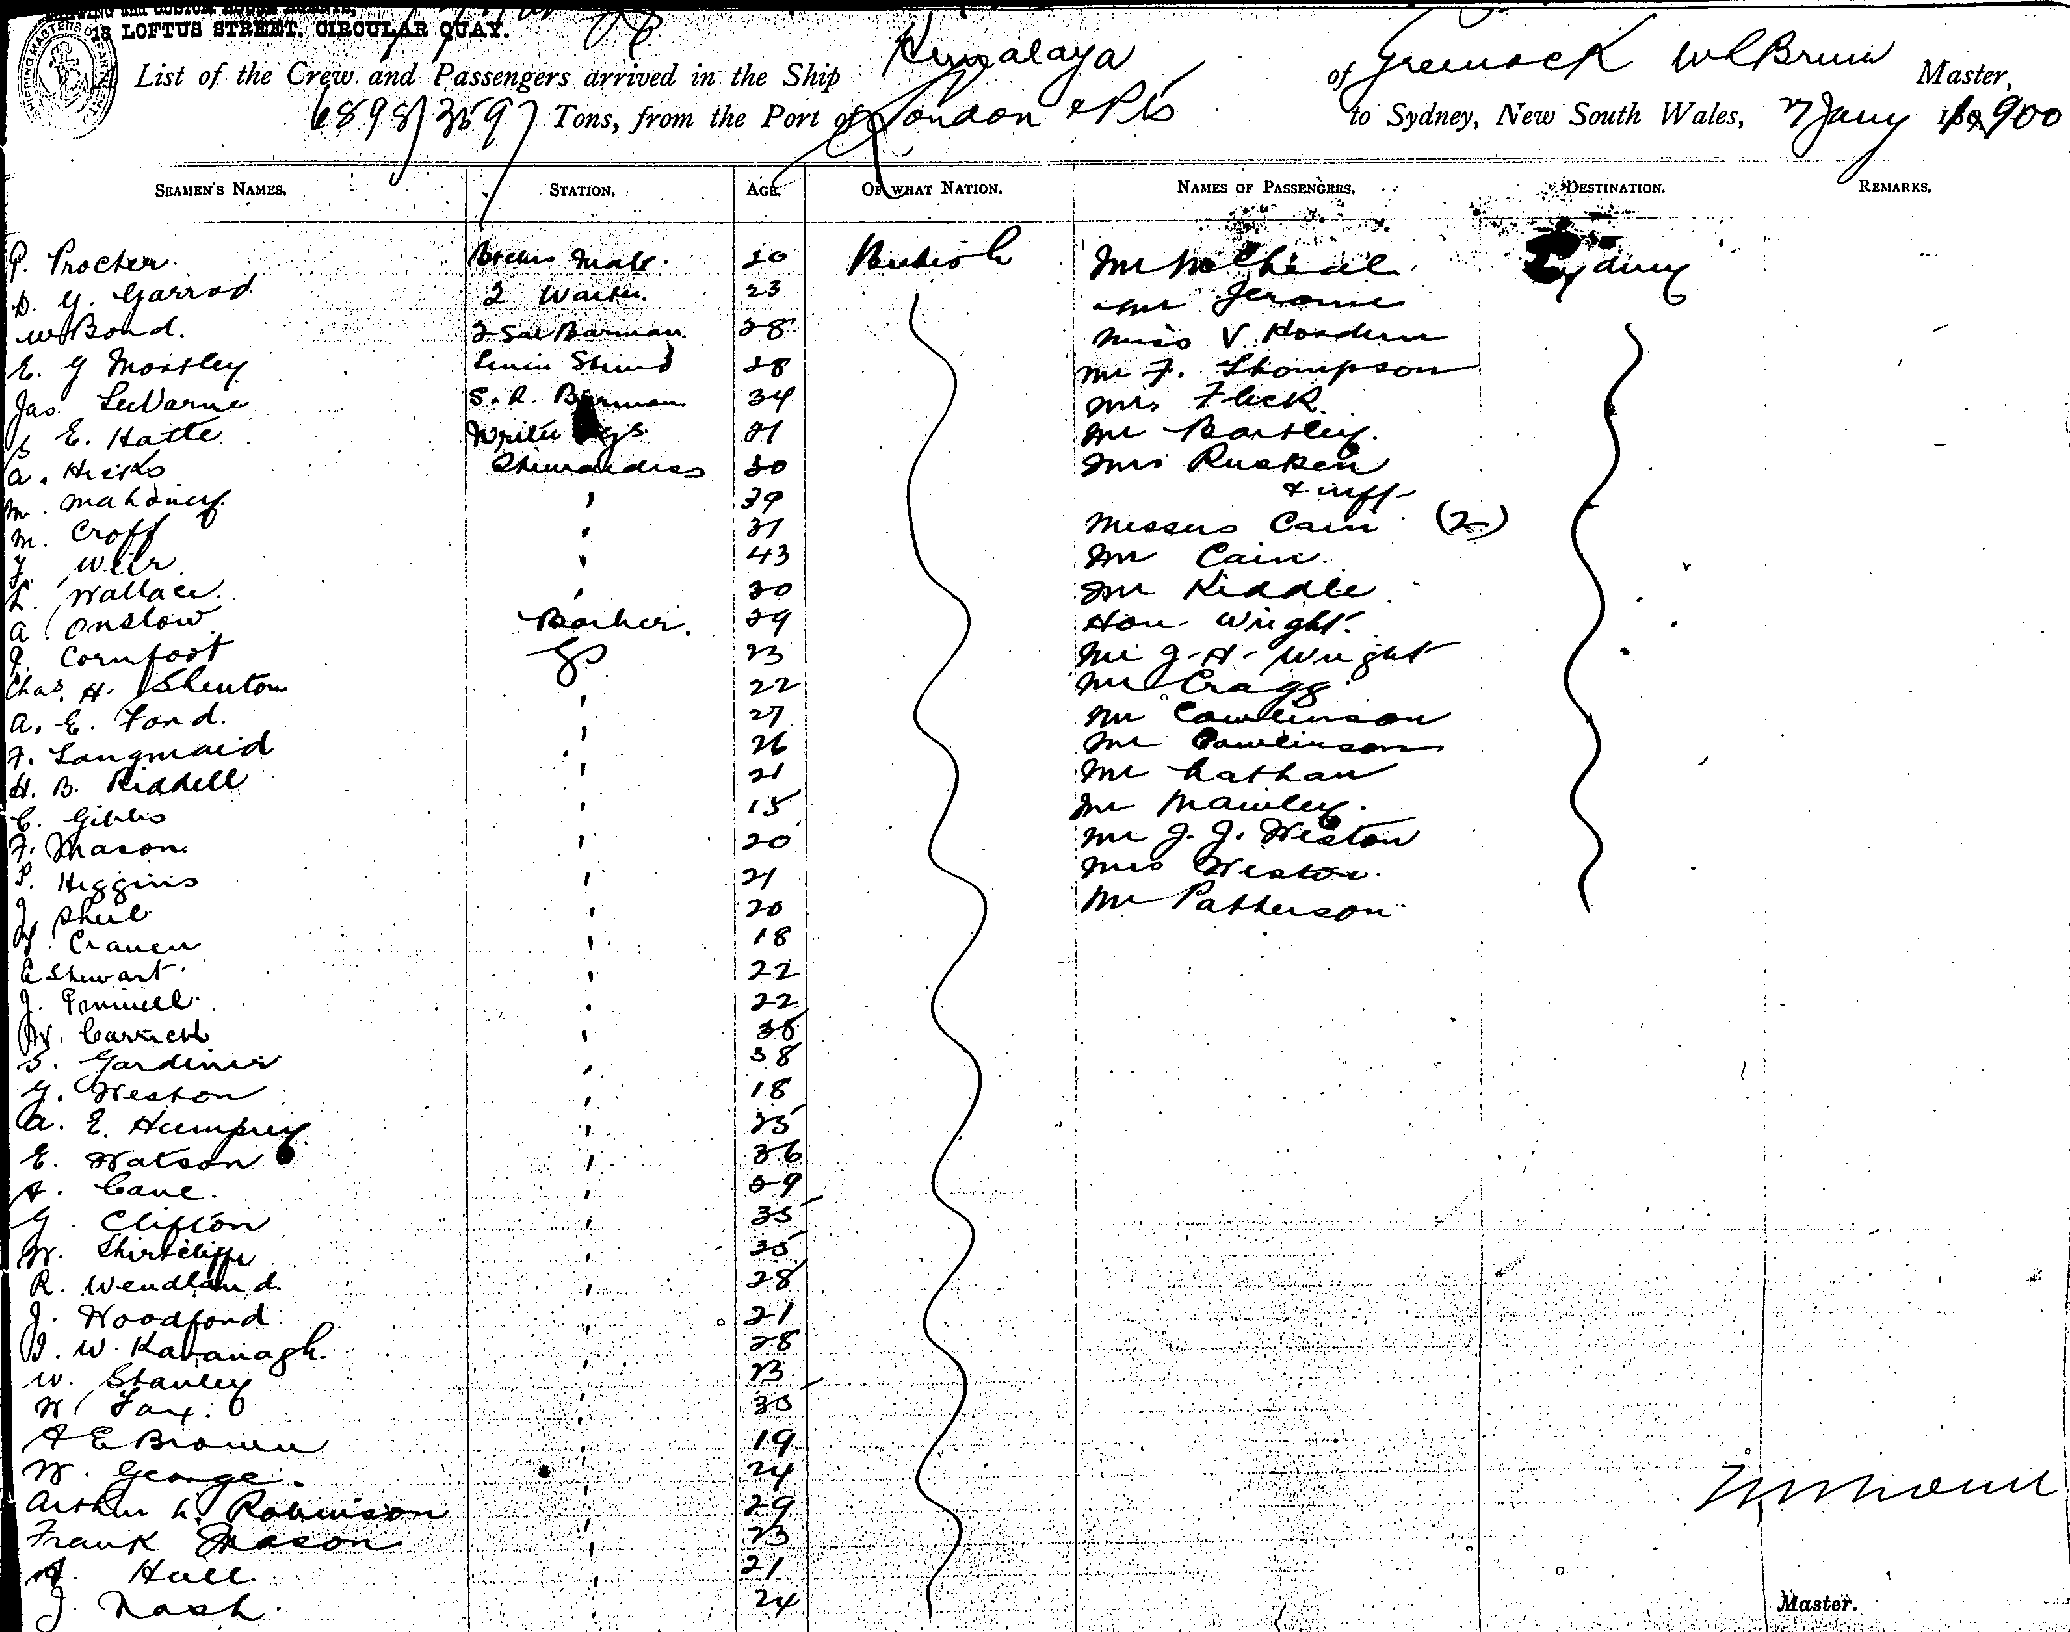 18 LOFTUS STREET, CIRCULAR QUAY.
List of the Crew and Passengers arrived in the Ship Himalaya of Greenock Master,
6898/3597 Tons, from the Port of London & Pts to Sydney, New South Wales, 7 Jany 1900
SEAMEN'S NAMES. STATION. AGE. OF WHAT NATION. NAMES OF PASSENGERS. DESTINATION. REMARKS.
P. Procter 20 British Mr Sydney
D. G. Garrod 2 Waiter 23 Mr Jerome
W Bond. 2 Sal Barman 28 Miss V. Hordern
E. G Mostley Linen Stewd 28 Mr F. Thompson
Jas S. R. Barman 34 Mrs Fleck
E. Hatte Writer 21 Mr Bartley
A. Hicks Stewardess 30 Mrs Rusken
& inft
M. Mahoney 39
M. Croft 31 Misses Cain (2)
Weir 43 Mr Cain
L. Wallace 30 Mr Riddle
A Onslow Barber. 29 Hon Wright
J. Cornfoot GS 23 Mr J. H. Wright
Chas. H. Shenton 22 Mr Cragg
A. E. Fond. 27 Mr Cowlinson
F. Langmaid 26 Mr
H. B. Riddell 21 Mr Nathan
C. Gibbs 15 Mr Mawley.
F. Mason 20 Mr J. J. Weston
P. Higgins 21 Mrs Weston.
J. Sheil 20 Mr Patterson
Craven 18
C Stewart 22
J. 22
W. Carrick 38
S. Gardiner 38
G. Weston 18
A. E. Humphrey 25
E. Watson 36
A. Cane. 39
G. Clifton 35
W. Shirtcliffe 25
R. Wendland 28
J. Woodford 21
J. W. Kavanagh 28
W. Stanley 23
W Fay. 30
A E Brown 19
W. George. 24
Arthur L. Robinson 29
Frank Mason 23
A. Hull 21
J. Nash. 24
Master.